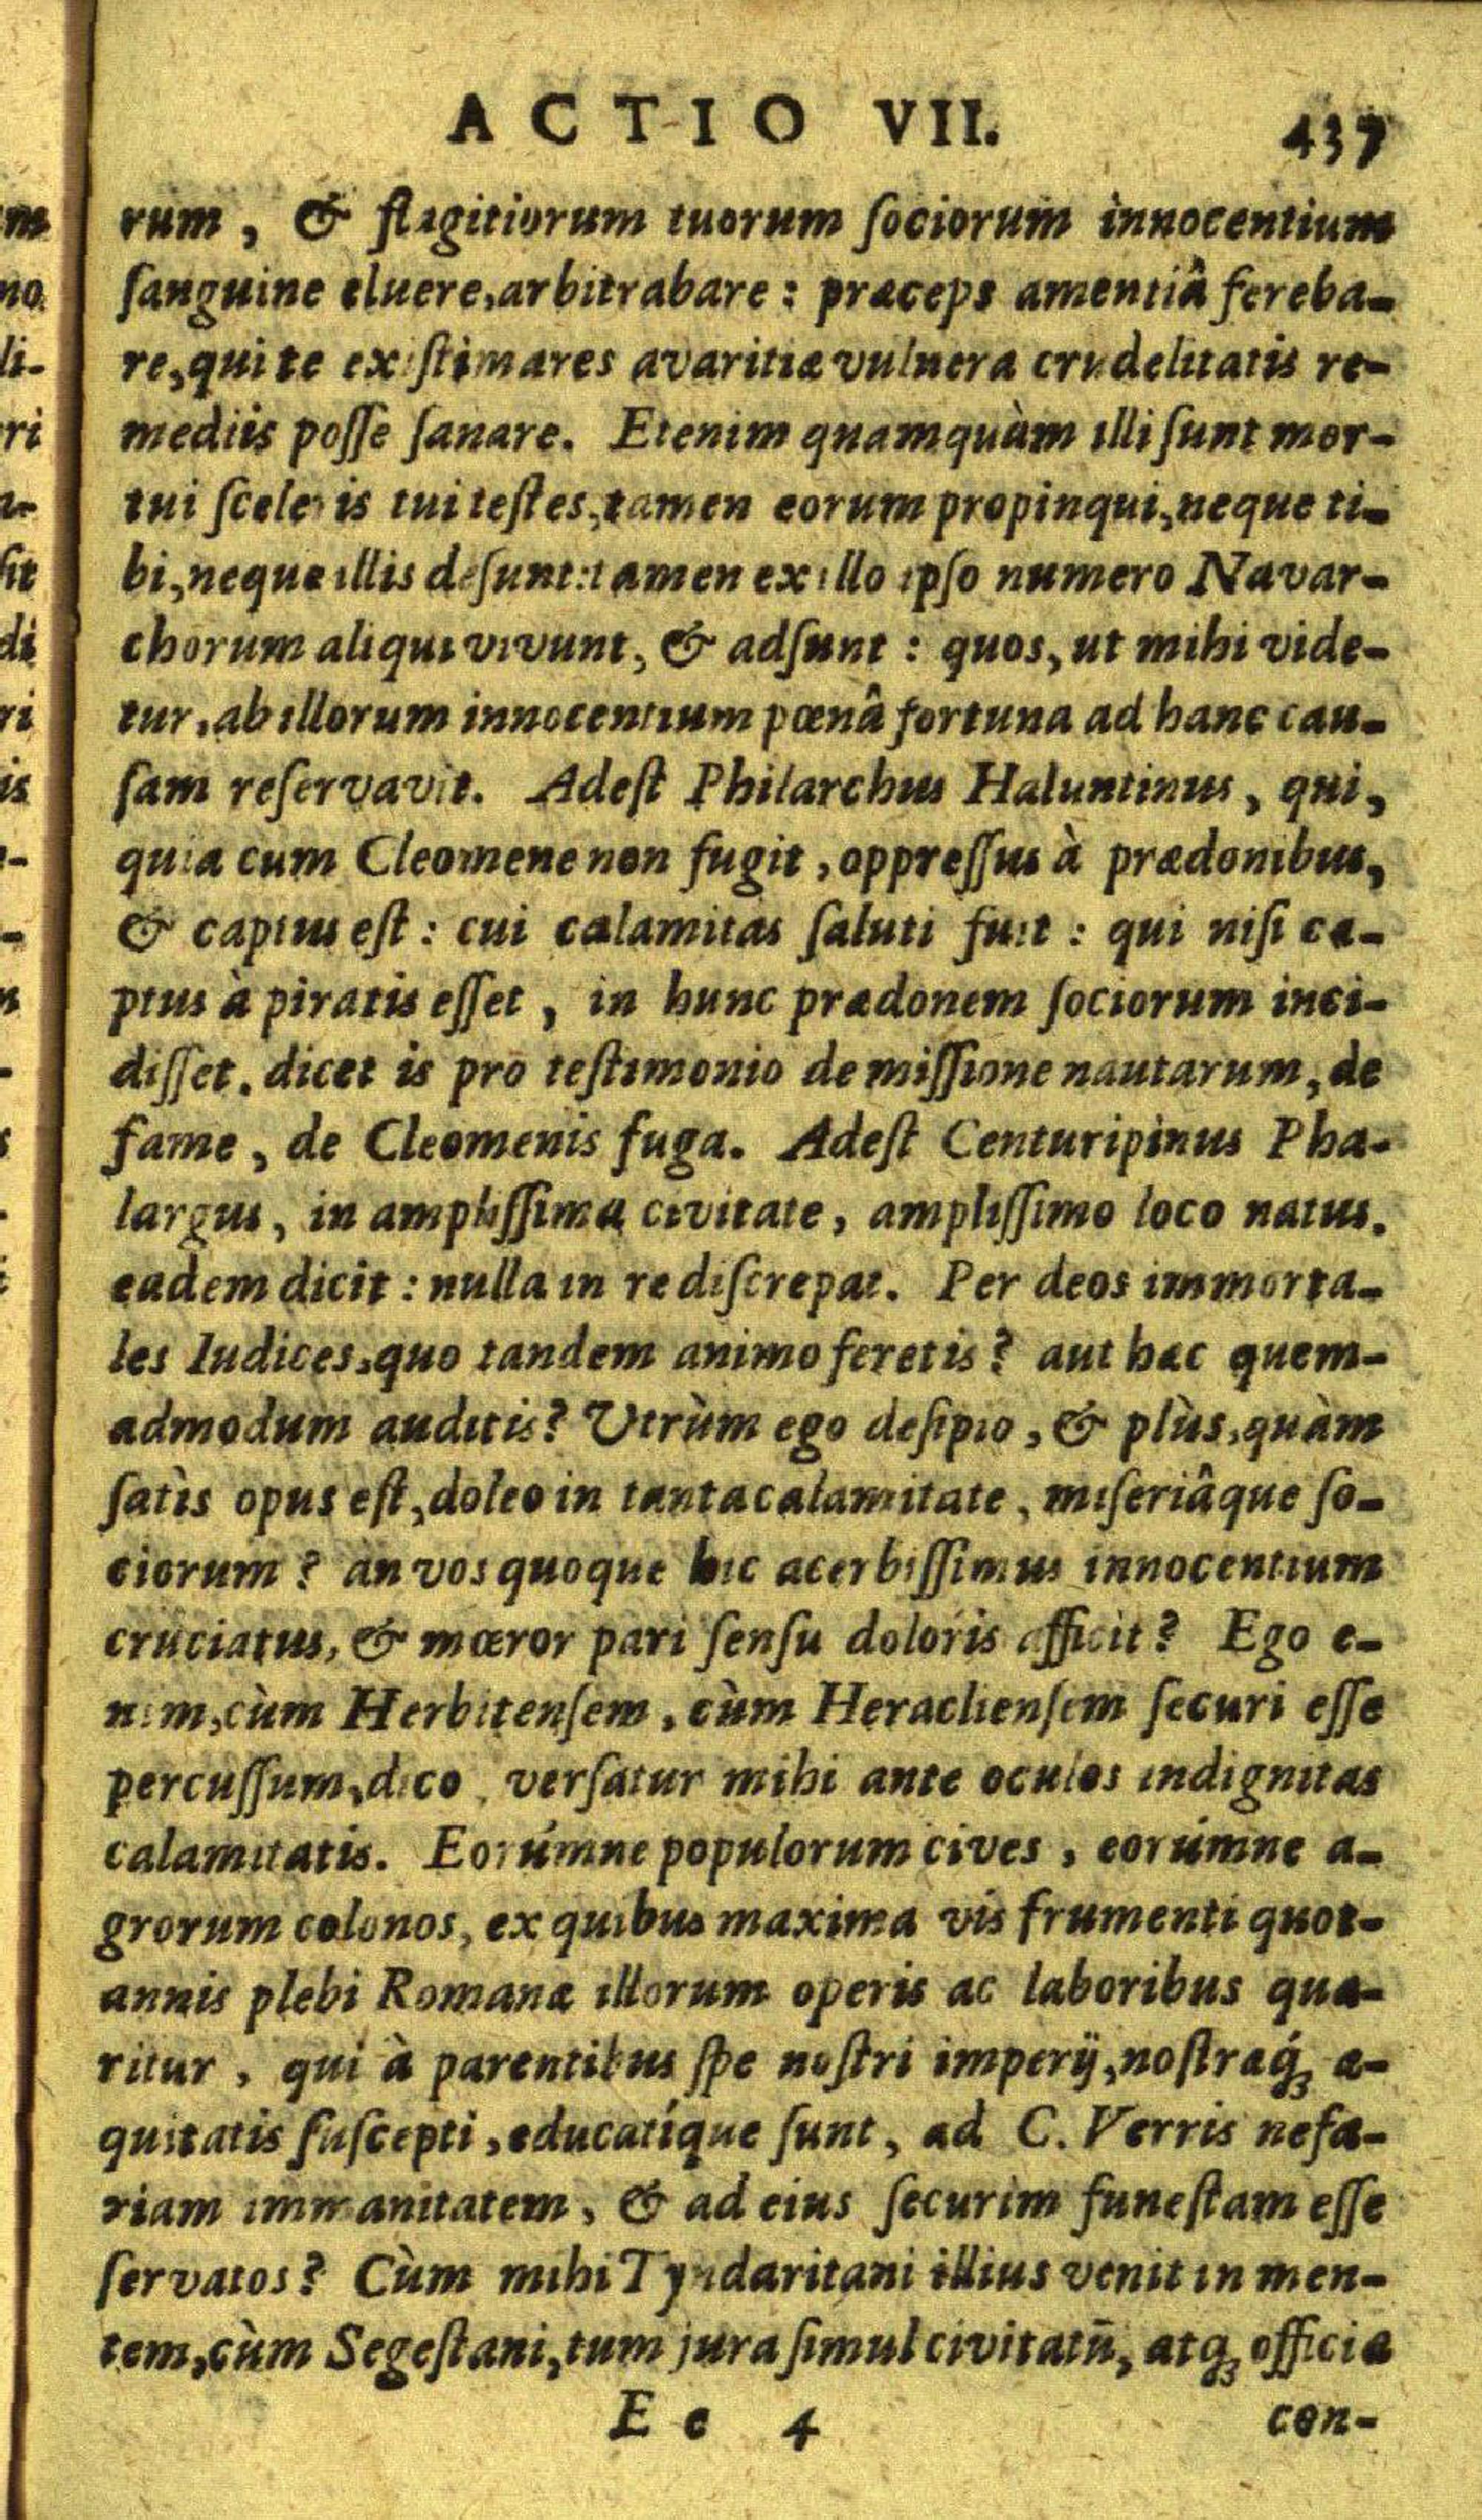 ACTIO VII. 437
rum, & flagitiorum tuorum ſociorum innocentium
ſanguine eluere, arbitrabare: præceps amentiâ fereba-
re, qui te exiſtimares avaritiæ vulnera crudelitatis re-
mediis poſſe ſanare. Etenim quamquàm illi ſunt mor-
tui ſceleris tui teſtes, tamen eorum propinqui, neque ti-
bi, neque illis deſunt: tamen ex illo ipſo numero Navar-
chorum aliqui vivunt, & adſunt: quos, ut mihi vide-
tur, ab illorum innocentium pœnâ fortuna ad hanc cau-
ſam reſervavit. Adeſt Philarchus Haluntinus, qui,
quia cum Cleomene non fugit, oppreſſus à prædonibus,
& captus eſt: cui calamitas ſaluti fuit: qui niſi ca-
ptus à piratis eſſet, in hunc prædonem ſociorum inci-
diſſet. dicet is pro teſtimonio de miſſione nautarum, de
fame, de Cleomenis fuga. Adeſt Centuripinus Pha-
largus, in ampliſſima civitate, ampliſſimo loco natus.
eadem dicit: nulla in re diſcrepat. Per deos immorta-
les Iudices, quo tandem animo feretis? aut hæc quem-
admodum auditis? Utrùm ego deſipio, & plùs, quàm
ſatìs opus eſt, doleo in tanta calamitate, miſeriâque ſo-
ciorum? an vos quoque hic acerbiſſimus innocentium
cruciatus, & mœror pari ſenſu doloris afficit? Ego e-
nim, cùm Herbitenſem, cùm Heraclienſem ſecuri eſſe
percuſſum, dico, verſatur mihi ante oculos indignitas
calamitatis. Eorúmne populorum cives, eorúmne a-
grorum colonos, ex quibus maxima vis frumenti quot-
annis plebi Romanæ illorum operis ac laboribus quæ-
ritur, qui à parentibus ſpe noſtri imperij, noſtræq́; æ-
quitatis ſuſcepti, educatíque ſunt, ad C. Verris nefa-
riam immanitatem, & ad eius ſecurim funeſtam eſſe
ſervatos? Cùm mihi Tyndaritani illius venit in men-
tem, cùm Segeſtani, tum jura ſimul civitatũ, atq; officia
E e 4 con-